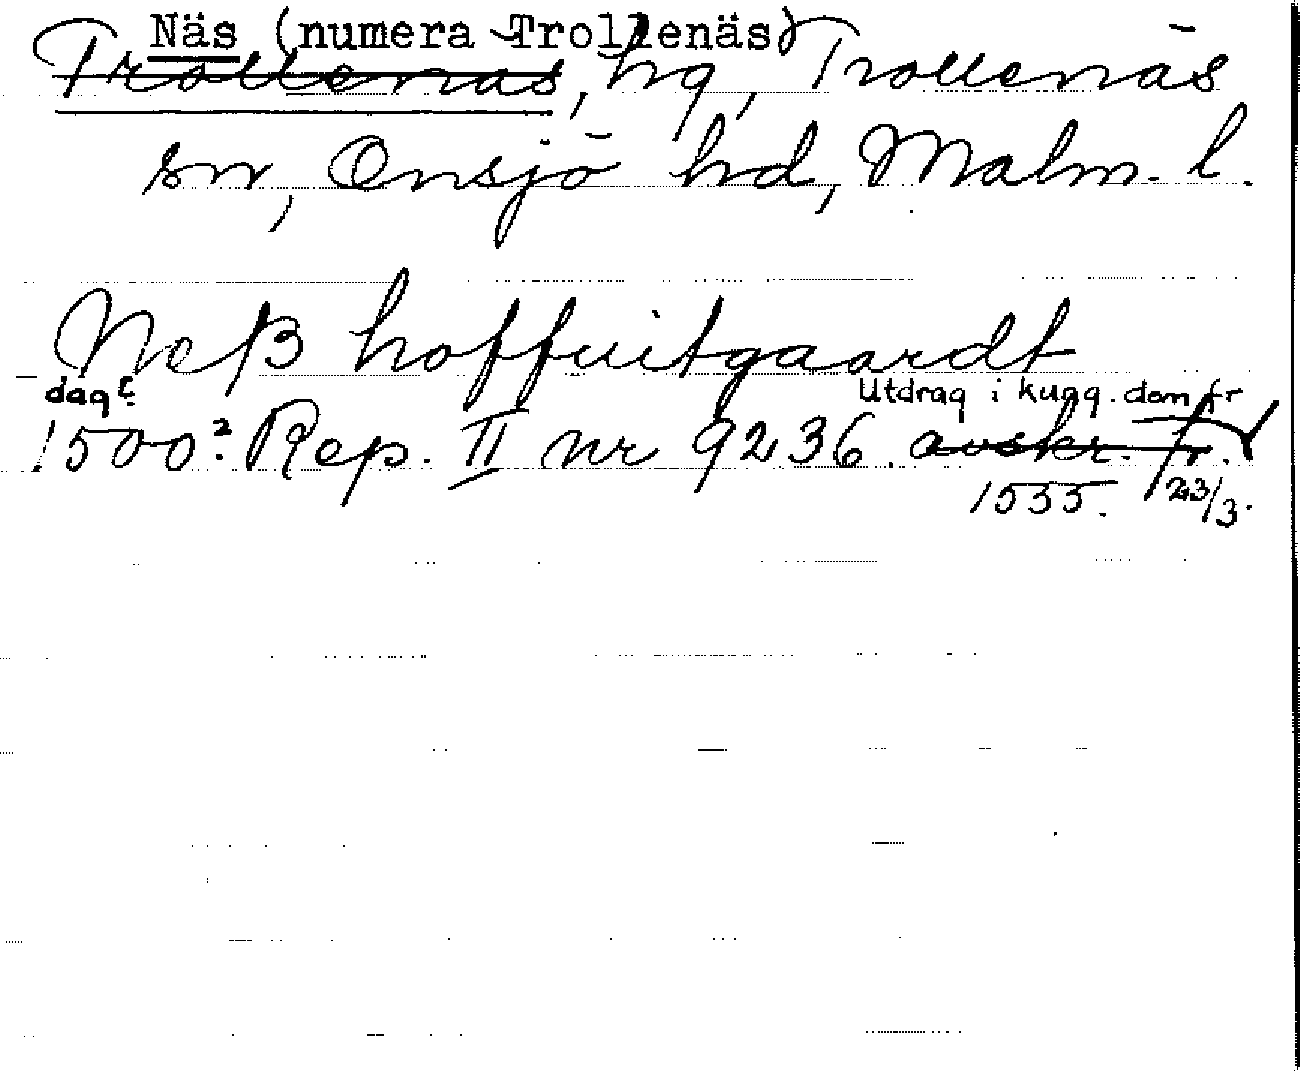 Näs (numera Trollenäs)
Trollenäs, hg, Trollenäs
sn, Onsjö hd, Malm. l.
Neß hoffuitgaardt
dag? Utdrag i kugg. dom fr
1500? Rep. II nr 9236. avskr. fr.
1535. 23/3.